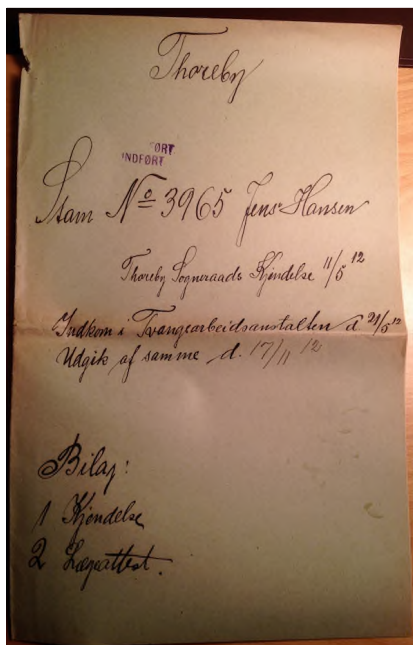 Thoreby
ØRT
INDFØRT
Stam No 3965 Jens Hansen
Thoreby Sogneraads Kjendelse 11/5 12
Indkom i Tvangsarbeidsanstalten d. 21/5 12
Udgik af samme d. 17/11 12
Bilag:
1 Kjendelse
2 Lægeattest.